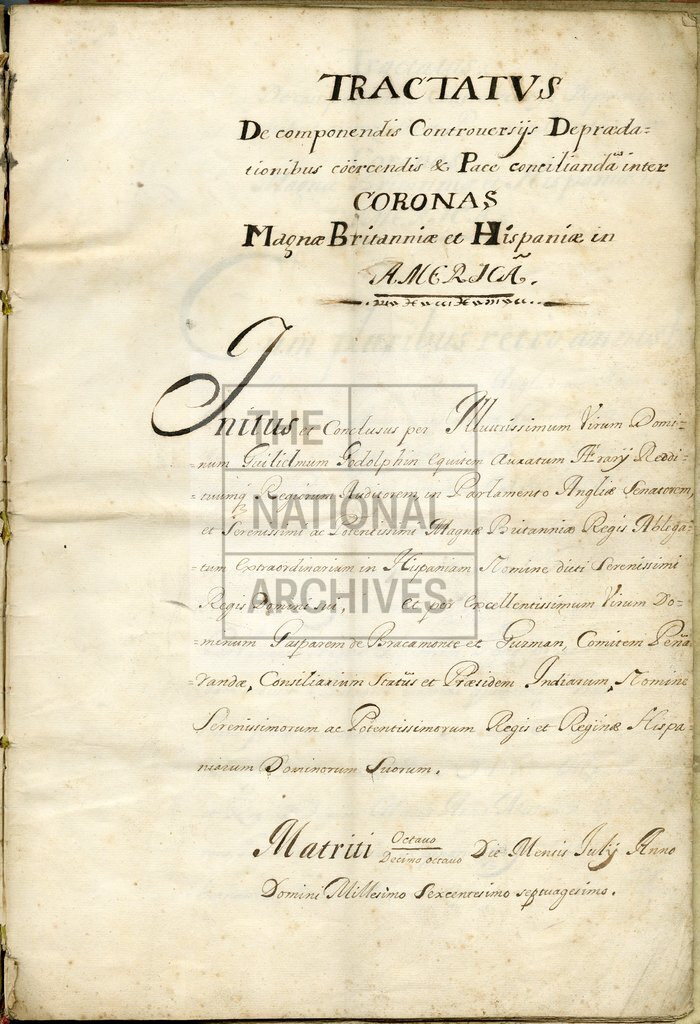 TRACTATVS
De componendis Controversijs Depræda=
tionibus cöercendis & Pace conciliandâ inter
CORONAS
Magnæ Britanniæ et Hispaniæ in
AMERICÃ.
Initus et Conclusus per Illustrissimum Virum Domi-
=num Guilielmum Godolphin Equitem Auratum Ærarij Reddi-
=tuumq Regiorum Auditorem, in Parlamento Angliæ Senatorem,
et Serenissimi ac Potentissimi Magnæ Britanniæ Regis Ablega-
=tum Extraordinarium in Hispaniam Nomine dicti Serenissimi
Regis Domini sui, et per Excellentissimum Virum Do-
=minum Gasparem de Bracamonte et Guzman, Comitem Peña
randæ, Consiliarium Statûs et Præsidem Indiarum, Nomine
Serenissimorum ac Potentissimorum Regis et Reginæ Hispa-
niarum Dominorum Suorum.
Matriti Octavo
Decimo octavo Die Mensis Julij Anno
Domini Millesimo Sexcentesimo septuagesimo.
THE
NATIONAL
ARCHIVES